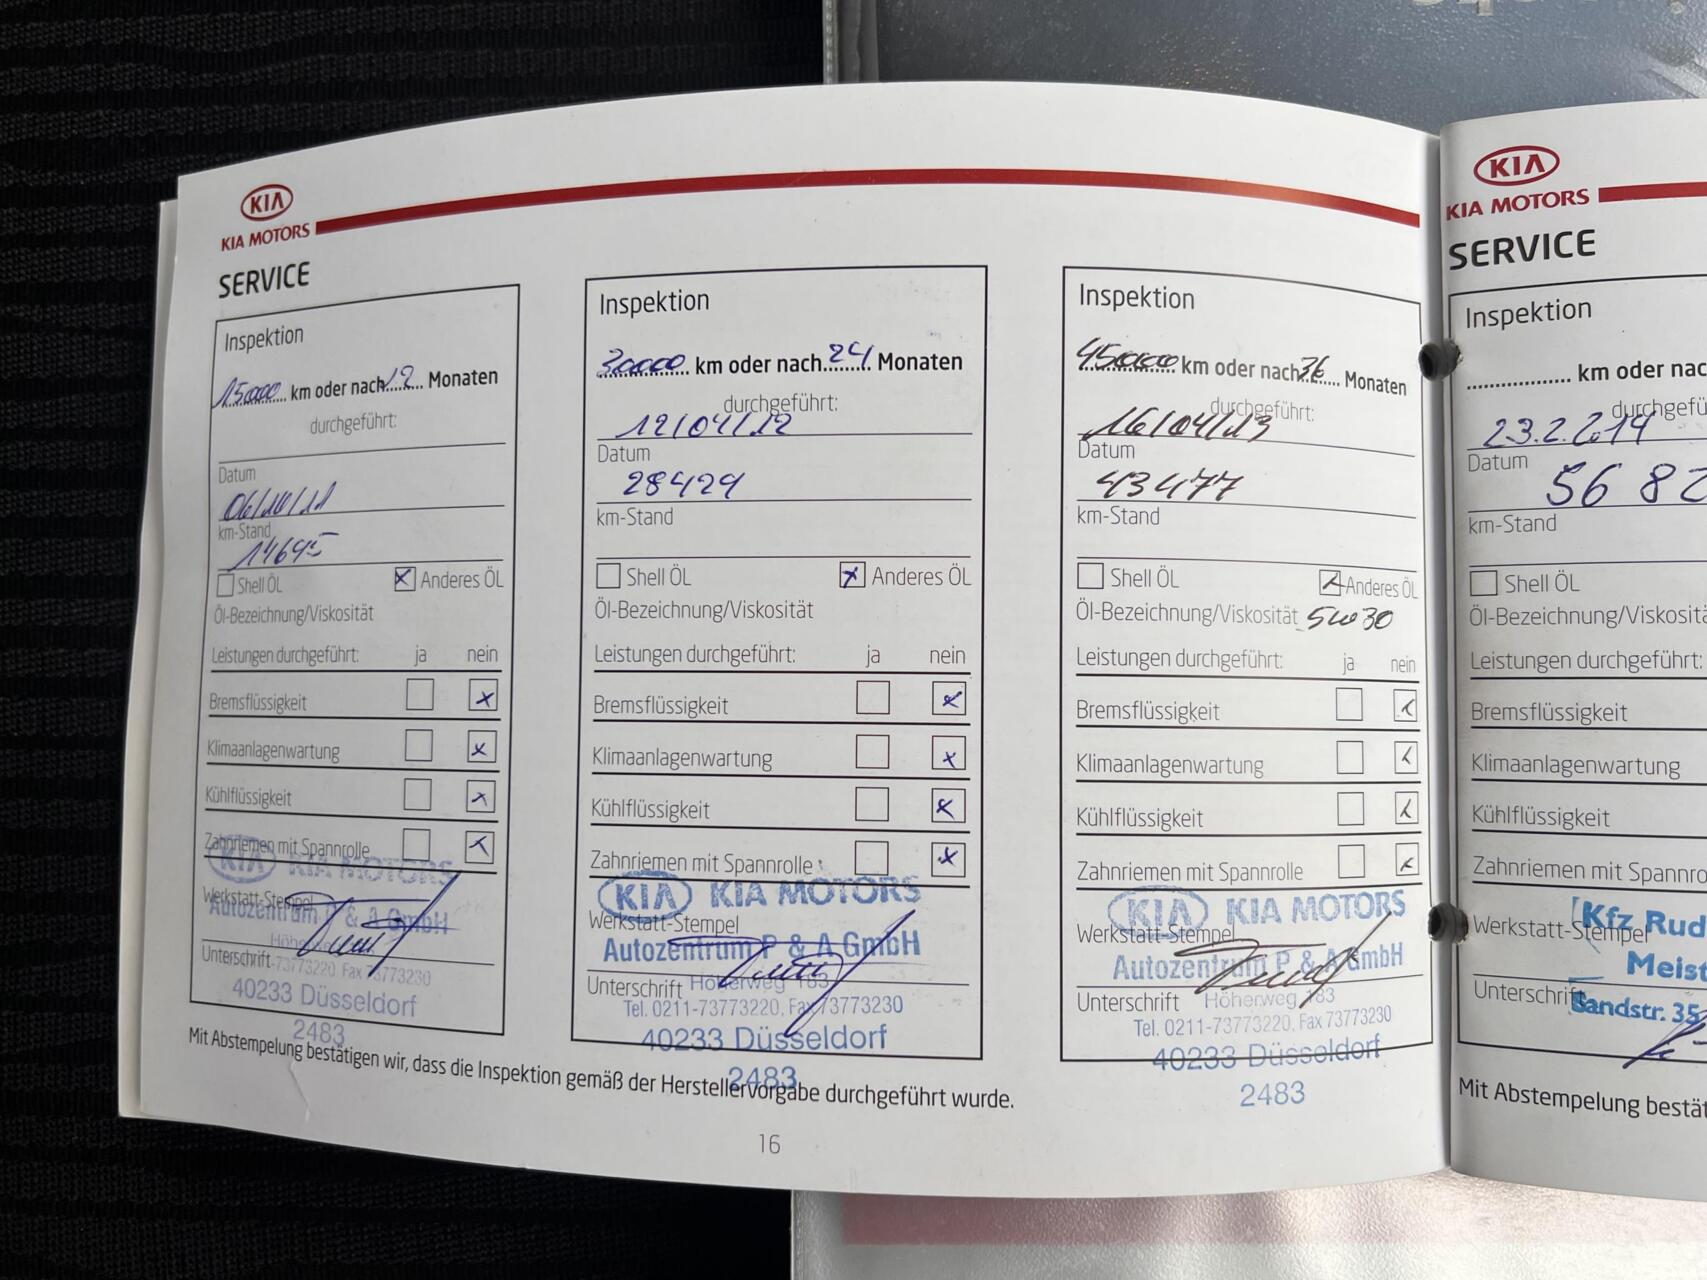 KIA
KIA MOTORS
SERVICE
Inspektion
15000 km oder nach 12 Monaten
durchgeführt:
Datum
06/10/11
km-Stand
14645
Shell ÖL
Anderes ÖL
Öl-Bezeichnung/Viskosität
Leistungen durchgeführt: ja nein
Bremsflüssigkeit
Klimaanlagenwartung
Kühlflüssigkeit
Zahnriemen mit Spannrolle
KIA KIA MOTORS
Werkstatt-Stempel
Autozentrum P & A GmbH
Unterschrift
73773220 Fax 73773230
40233 Düsseldorf
2483
Inspektion
30000 km oder nach 24 Monaten
durchgeführt:
12/04/12
Datum
28429
km-Stand
Shell ÖL
Anderes ÖL
Öl-Bezeichnung/Viskosität
Leistungen durchgeführt: ja nein
Bremsflüssigkeit
Klimaanlagenwartung
Kühlflüssigkeit
Zahnriemen mit Spannrolle
KIA KIA MOTORS
Werkstatt-Stempel
Autozentrum P & A GmbH
Unterschrift
Höherweg 183
Tel. 0211-73773220, Fax 73773230
40233 Düsseldorf
2483
Inspektion
45000 km oder nach 36 Monaten
durchgeführt:
16/04/13
Datum
43477
km-Stand
Shell ÖL
Anderes ÖL
Öl-Bezeichnung/Viskosität 5W30
Leistungen durchgeführt: ja nein
Bremsflüssigkeit
Klimaanlagenwartung
Kühlflüssigkeit
Zahnriemen mit Spannrolle
KIA KIA MOTORS
Werkstatt-Stempel
Autozentrum P & A GmbH
Unterschrift
Höherweg 183
Tel. 0211-73773220, Fax 73773230
40233 Düsseldorf
2483
Mit Abstempelung bestätigen wir, dass die Inspektion gemäß der Herstellervorgabe durchgeführt wurde.
16
KIA
KIA MOTORS
SERVICE
Inspektion
km oder nac
durchgefü
23.2.2014
Datum
56 82
km-Stand
Shell ÖL
Öl-Bezeichnung/Viskositä
Leistungen durchgeführt:
Bremsflüssigkeit
Klimaanlagenwartung
Kühlflüssigkeit
Zahnriemen mit Spannro
Kfz Rud
Werkstatt-Stempel
Meist
Unterschrift
Sandstr. 35
Mit Abstempelung bestät